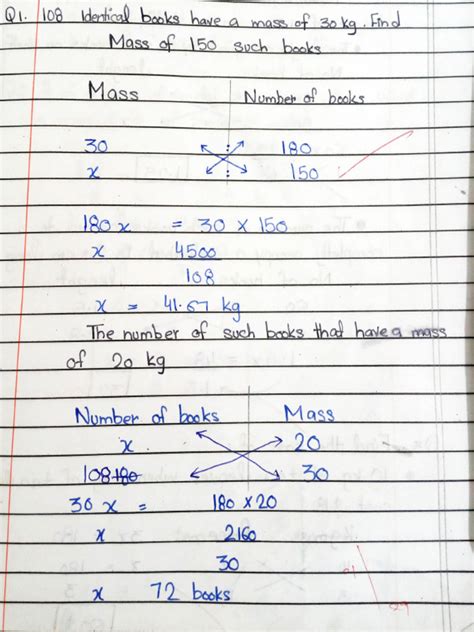 Q1. 108 Identical books have a mass of 30 kg. Find
Mass of 150 such books
Mass Number of books
30 180
x 150
180 x = 30 x 150
x 4500
108
x = 41.67 kg
The number of such books that have a mass
of 20 kg
Number of books Mass
x 20
108 180 30
30 x = 180 x 20
x 2160
30
x 72 books